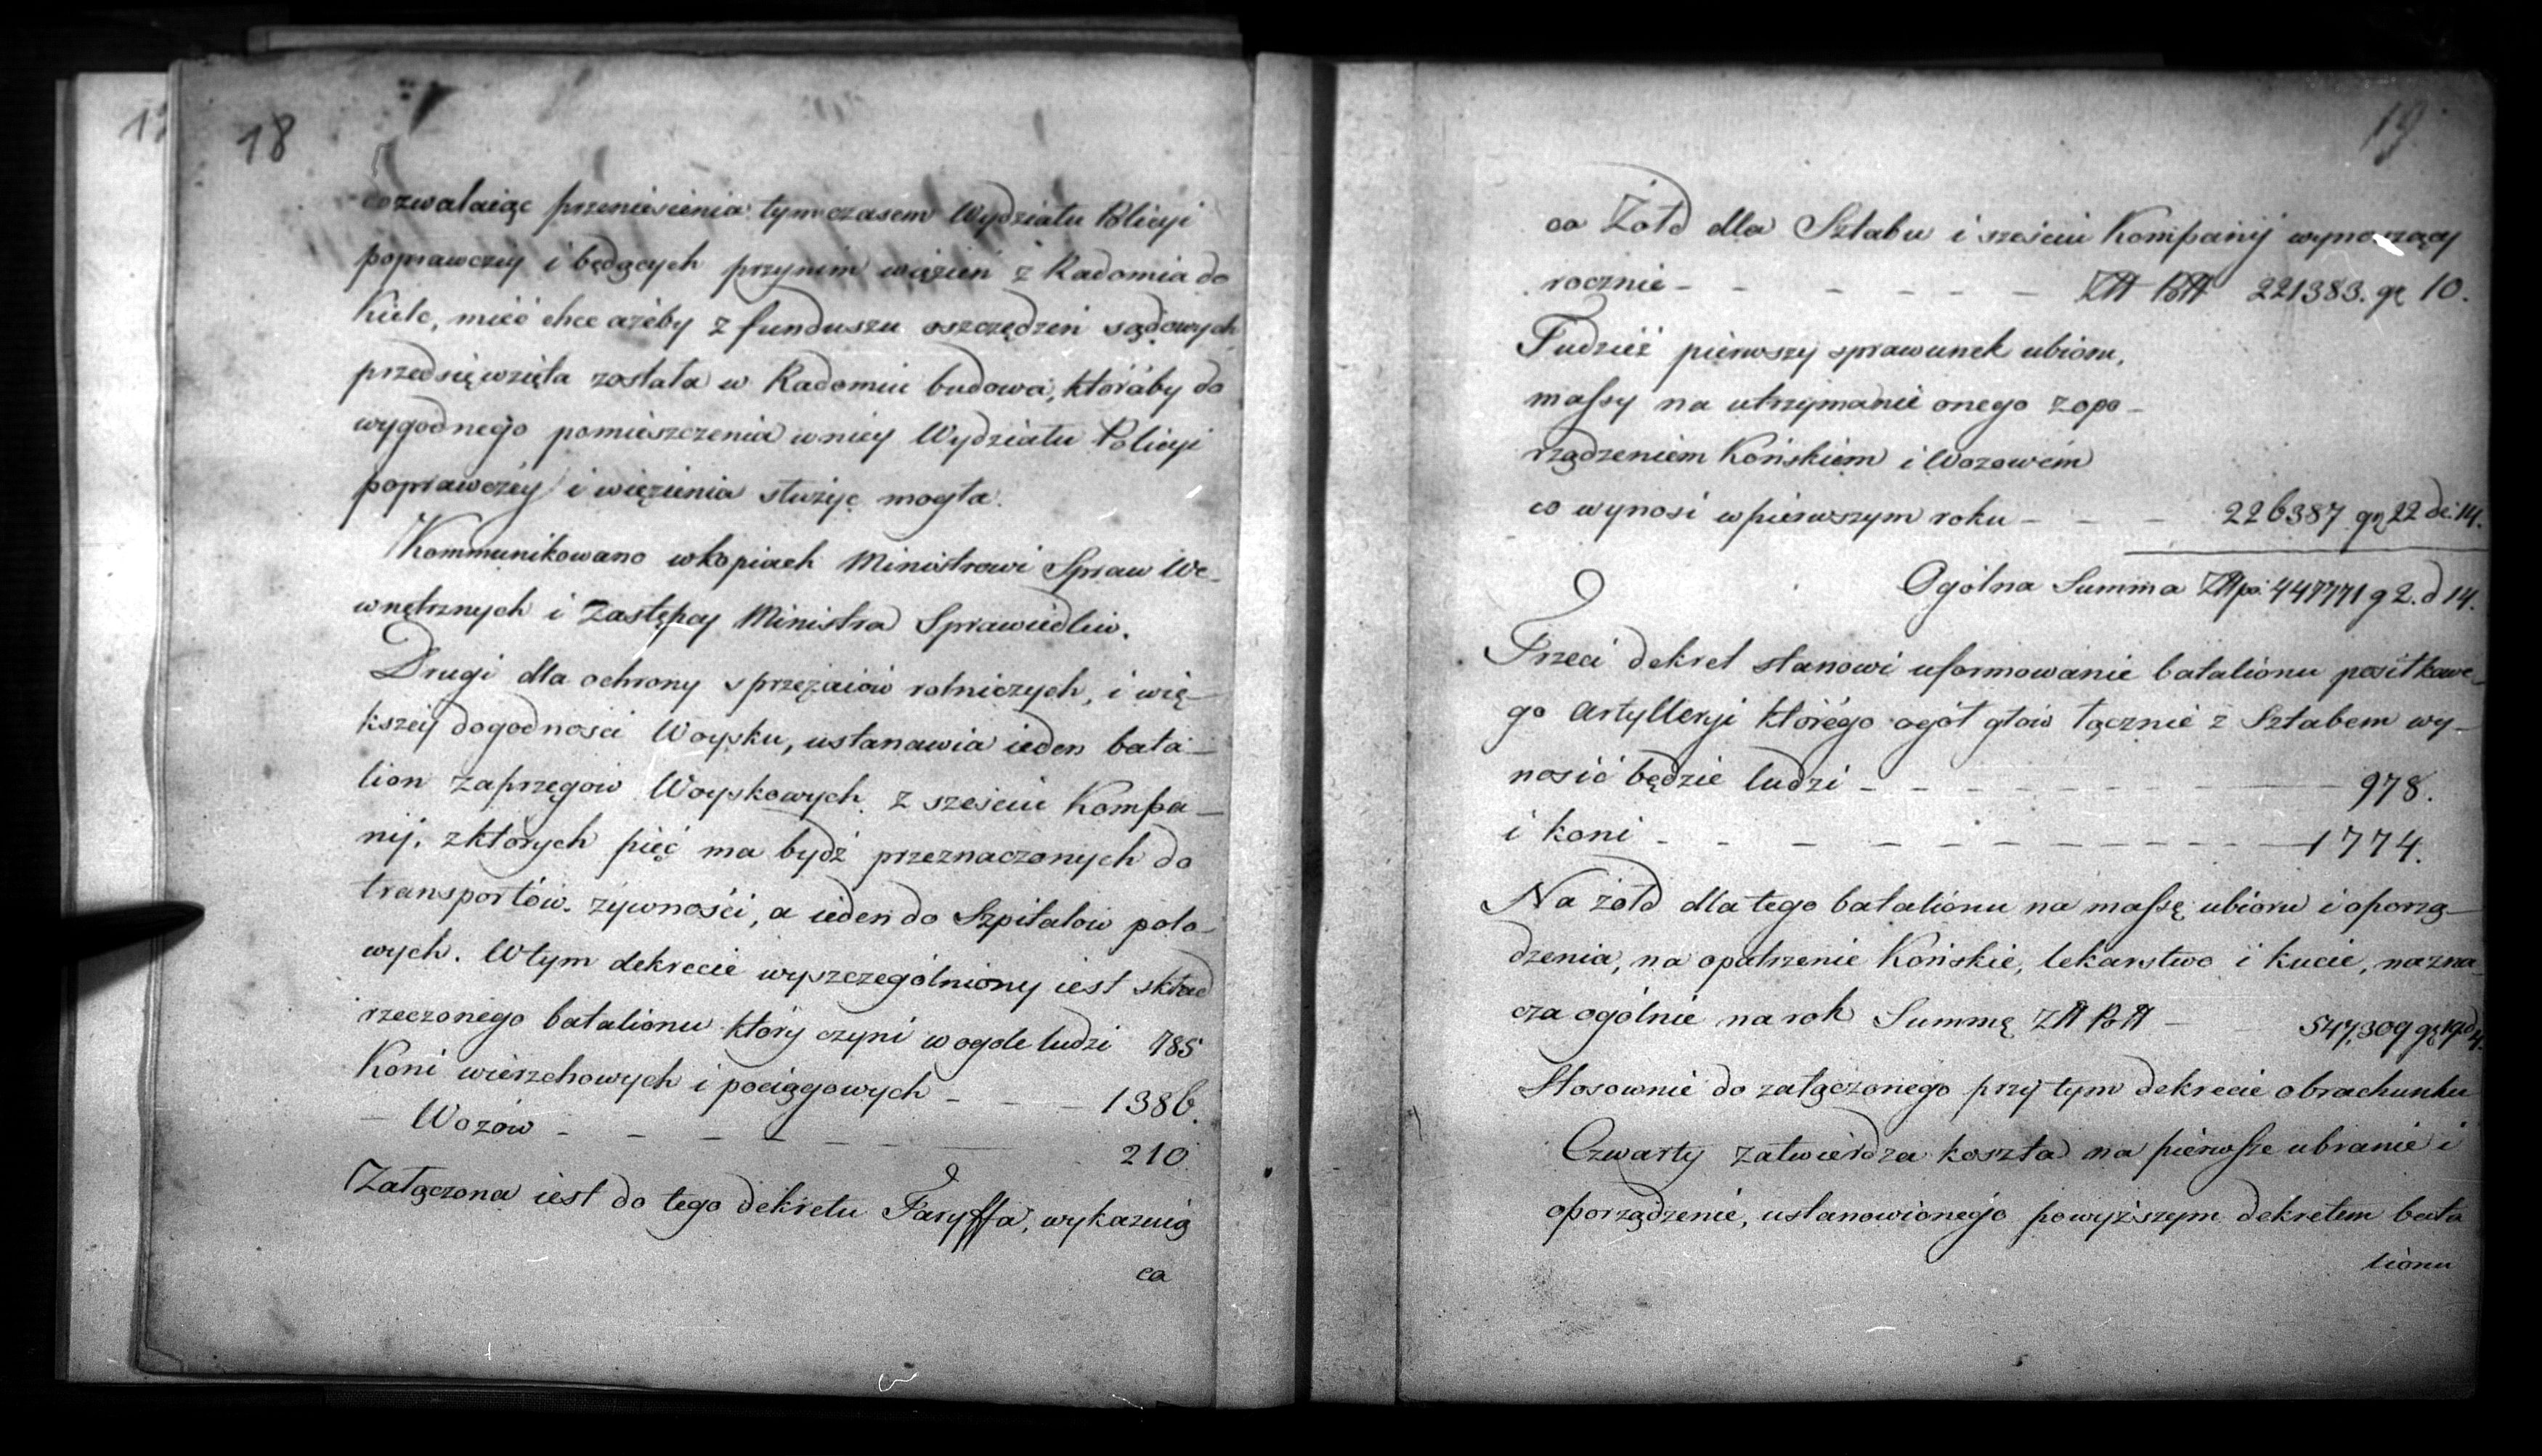 18
ozwalaiąc przeniesienia tymczasem Wydziału Policyi
poprawczey i będących przynim więzień z Radomia do
Kielc, mieć chce ażeby z funduszu oszczędzeń sądowych
przedsięwzięta została w Radomiu budowa, któraby do
wygodnego pomieszczenia wniey Wydziału Policyi
poprawczey i więzienia służyć mogła.
Kommunikowano wkopiach Ministrowi Spraw We-
wnętrznych i Zastępcy Ministra Sprawiedliw.
Drugi dla ochrony sprzężaiów rolniczych, i wię-
kszey dogodności Woysku, ustanawia ieden bata-
lion Zaprzęgów Woyskowych z sześciu Kompa-
nij, zktórych pięć ma bydź przeznaczonych do
transportów żywności, a ieden do Szpitalow polo-
wych. Wtym dekrecie wyszczególniony iest skład
rzeczonego batalionu który czyni wogole ludzi 785
Koni wierzchowych i pociągowych - - - 1386.
- Wozów - - - - - - 210
Załączona iest do tego dekretu Taryffa, wykazuią
ca
19
ca Żołd dla Sztabu i sześciu Kompanij wynoszący
rocznie - - - - - - Złł Poll 221383. gr 10.
Tudzież pierwszy sprawunek ubioru,
massy na utrzymanie onego zopo-
rządzeniem Końskiem i Wozowém
co wynosi wpierwszym roku - - - 226387 gr 22 de: 14.
Ogólna Summa Złlpo: 447771 g 2. d 14.
Trzeci dekret stanowi uformowanie batalionu posiłkowe-
go Artylleryi którego ogół głów łącznie z Sztabem wy-
nosić będzie ludzi - - - - - - 978.
i koni - - - - - - - - 1774.
Na żołd dla tego batalionu na massę ubioru i oporzą-
dzenia, na opatrzenie Końskie, lekarstwo i kucie, nazna-
cza ogólnie narok Summę Złł Poll - - 547,309
Stosownie do załączonego przy tym dekrecie obrachunku
Czwarty zatwierdza koszta na pierwsze ubranie i
oporządzenie, ustanowionego powyższym dekretem bata
lionu